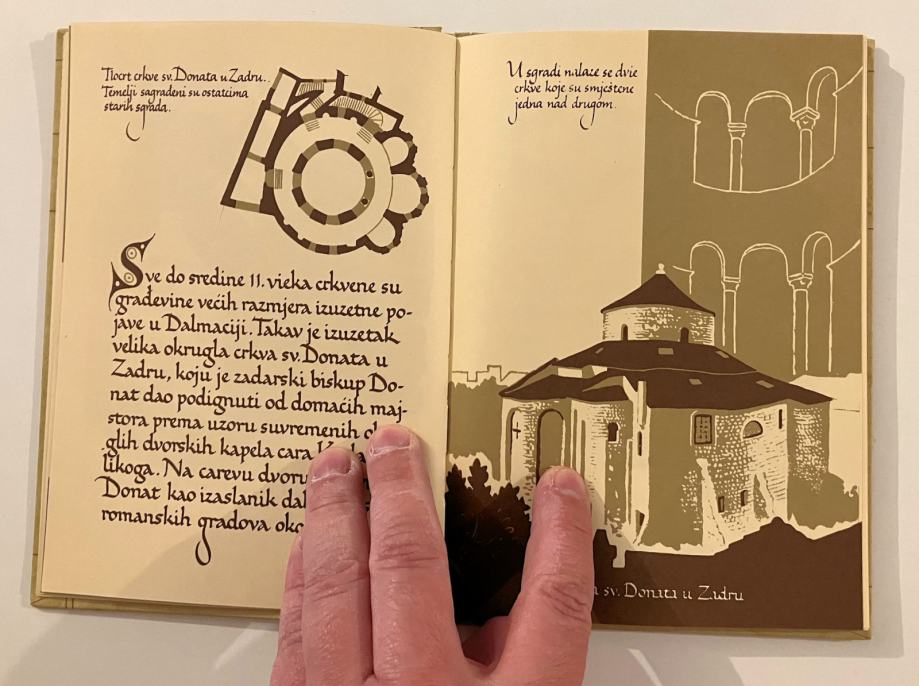 Tlocrt crkve sv. Donata u Zadru.
Temelji sagrađeni su ostatcima
starih sgrada.
Sve do sredine 11. vieka crkvene su
građevine većih razmjera izuzetne po-
jave u Dalmaciji. Takav je izuzetak
velika okrugla crkva sv. Donata u
Zadru, koju je zadarski biskup Do-
nat dao podignuti od domaćih maj-
stora prema uzoru suvremenih
glih dvorskih kapela cara
likoga. Na carevu dvoru
Donat kao izaslanik
romanskih gradova
U sgradi nalaze se dvie
crkve koje su smještene
jedna nad drugom.
sv. Donata u Zadru